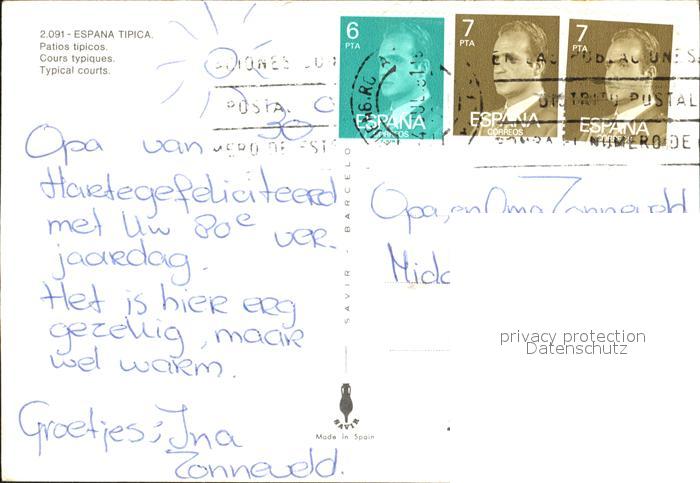 2.091 - ESPAÑA TIPICA.
Patios típicos.
Cours typiques.
Typical courts.
6 PTA
ESPAÑA
CORREOS
7 PTA
ESPAÑA
CORREOS
7 PTA
ESPAÑA
POSTAL
DISTRITO POSTAL
NUMERO DE
Opa van
30
Hartegefeliciteerd
met Uw 80e ver-
jaardag.
Het is hier erg
gezellig, maar
wel warm.
Groetjes: Ina
Zonneveld.
SAVIR - BARCELO
SAVIR
Made in Spain
Opa, en Oma Zonneveld
Midd
privacy protection
Datenschutz